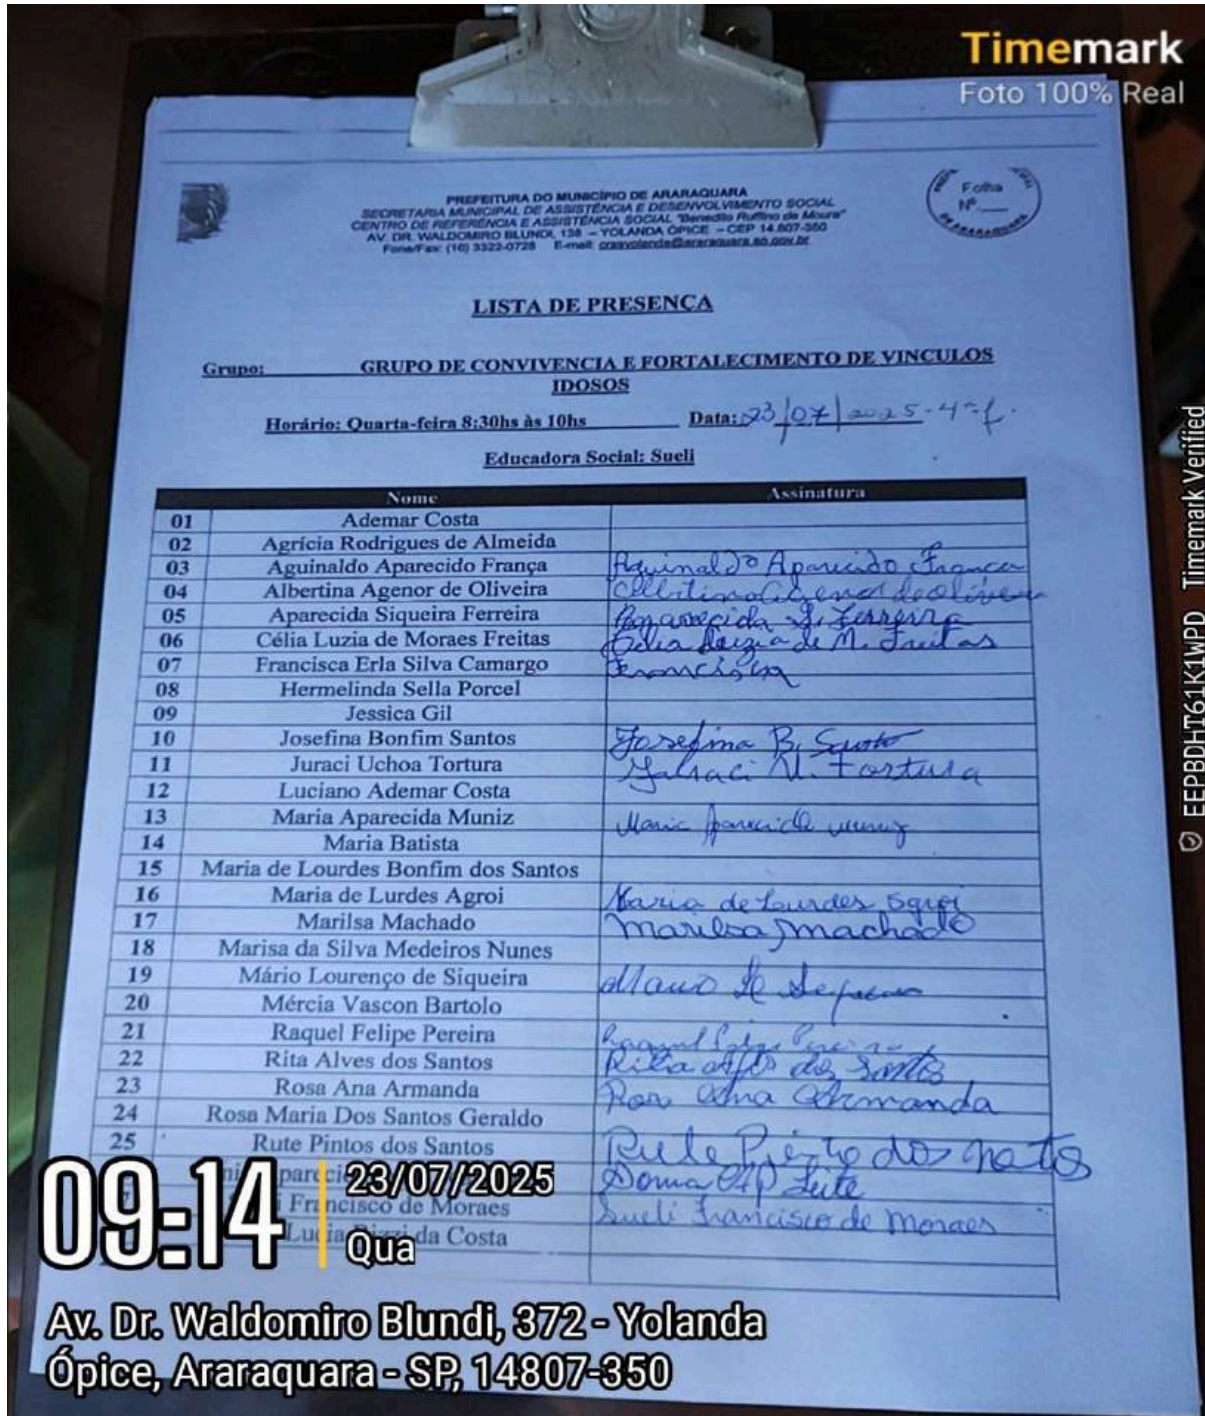 Timemark
Foto 100% Real
Folha
Nº
PREFEITURA DO MUNICÍPIO DE ARARAQUARA
SECRETARIA MUNICIPAL DE ASSISTÊNCIA E DESENVOLVIMENTO SOCIAL
CENTRO DE REFERÊNCIA E ASSISTÊNCIA SOCIAL "Benedito Ruffino de Moura"
AV. DR. WALDOMIRO BLUNDI, 138 – YOLANDA ÓPICE – CEP 14.807-350
Fone/Fax: (16) 3322-0728 E-mail: crasyolanda@araraquara.sp.gov.br
LISTA DE PRESENÇA
Grupo: GRUPO DE CONVIVENCIA E FORTALECIMENTO DE VINCULOS
IDOSOS
Horário: Quarta-feira 8:30hs às 10hs Data: 23/07/2025-4ªf.
Educadora Social: Sueli
Nome Assinatura
01 Ademar Costa
02 Agrícia Rodrigues de Almeida
03 Aguinaldo Aparecido França Aguinaldo Aparecido França
04 Albertina Agenor de Oliveira
05 Aparecida Siqueira Ferreira Aparecida S. Ferreira
06 Célia Luzia de Moraes Freitas Célia Luzia de M. Freitas
07 Francisca Erla Silva Camargo Francisca
08 Hermelinda Sella Porcel
09 Jessica Gil
10 Josefina Bonfim Santos Josefina B.
11 Juraci Uchoa Tortura U. Tortura
12 Luciano Ademar Costa
13 Maria Aparecida Muniz Maria
14 Maria Batista
15 Maria de Lourdes Bonfim dos Santos
16 Maria de Lurdes Agroi Maria de Lourdes
17 Marilsa Machado Marilsa Machado
18 Marisa da Silva Medeiros Nunes
19 Mário Lourenço de Siqueira
20 Mércia Vascon Bartolo
21 Raquel Felipe Pereira Raquel
22 Rita Alves dos Santos Rita dos Santos
23 Rosa Ana Armanda Ana Armanda
24 Rosa Maria Dos Santos Geraldo
25 Rute Pintos dos Santos Rute
Leite
Francisco de Moraes Sueli Francisco de Moraes
Lucia da Costa
09:14
23/07/2025
Qua
Av. Dr. Waldomiro Blundi, 372 - Yolanda
Ópice, Araraquara - SP, 14807-350
EEPBDHT61K1WPD Timemark Verified